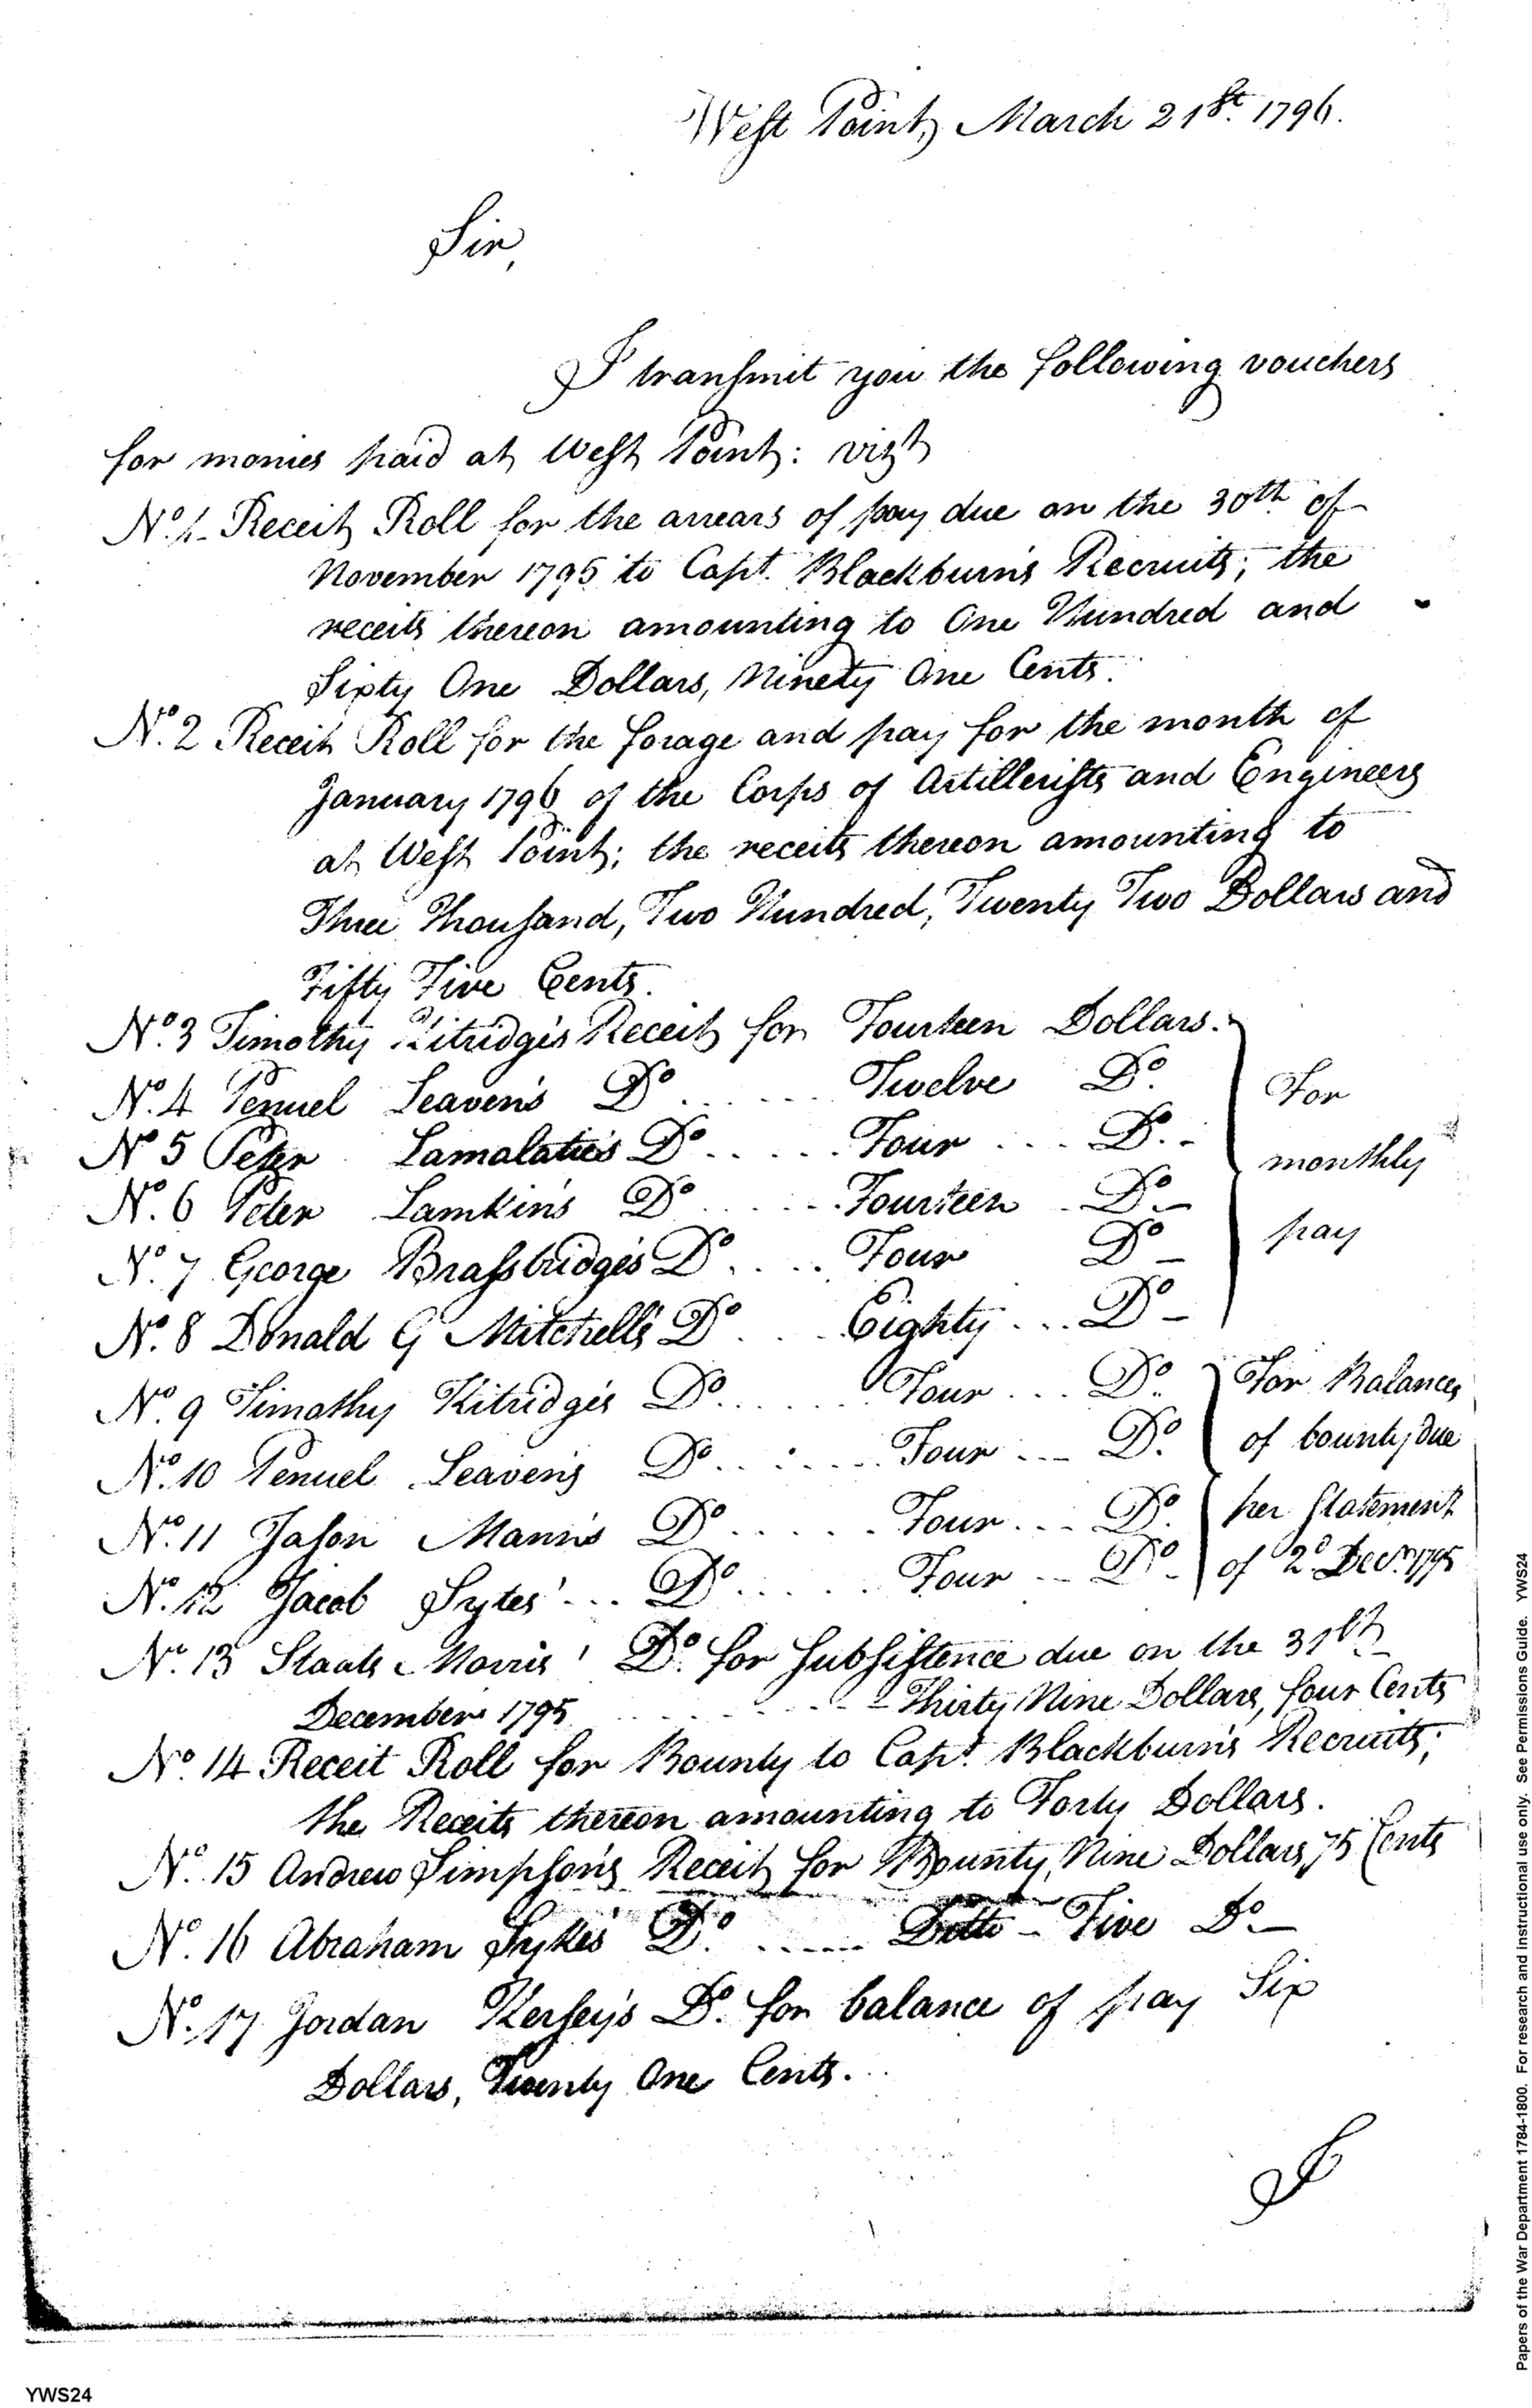 West Point, March 21st. 1796.
Sir,
I transmit you the following vouchers
for monies paid at West Point: vizt
No. 1. Receit Roll for the arrears of pay due on the 30th of
November 1795 to Capt. Blackburn's Recruits; the
receits thereon amounting to One Hundred and
Sixty One Dollars, Ninety One Cents.
No. 2 Receit Roll for the forage and pay for the month of
January 1796 of the Corps of Artillerists and Engineers
at West Point; the receits thereon amounting to
Three Thousand, Two Hundred, Twenty Two Dollars and
Fifty Five Cents.
No. 3 Timothy Kitridge's Receit for Fourteen Dollars.
No. 4 Penuel Leaven's Do. . . . . Twelve Do. For
No 5 Peter Lamalatie's Do . . . . . Four . . . Do. - monthly
No. 6 Peter Lamkin's Do . . . . . Fourteen . Do - pay
No. 7 George Brassbridge's Do . . . . Four Do -
No. 8 Donald G Mitchell's Do . . . Eighty . . . Do -
No. 9 Timothy Kitridge's Do . . . . . . Four . . . Do. For Balances
No. 10 Penuel Leaven's Do . . . . . . . Four . . . Do. of bounty due
No. 11 Jason Mann's Do . . . . . Four . . . Do. per Statement
No. 12 Jacob Sytes' . . . Do . . . . . Four . . Do - of 2d Decr. 1795
No. 13 Staats Morris' Do. for subsistence due on the 31st
December 1795 . . . . . . . . Thirty Nine Dollars, four Cents
No. 14 Receit Roll for Bounty to Capt. Blackburn's Recruits;
the Receits thereon amounting to Forty Dollars.
No. 15 Andrew Simpson's Receit for Bounty, Nine Dollars, 75 Cents
No. 16 Abraham Sykes' Do. . . . . . Ditto - Five Do -
No. 17 Jordan Kersey's Do. for balance of pay Six
Dollars, Twenty One Cents.
I
Papers of the War Department 1784-1800. For research and instructional use only. See Permissions Guide. YWS24
YWS24